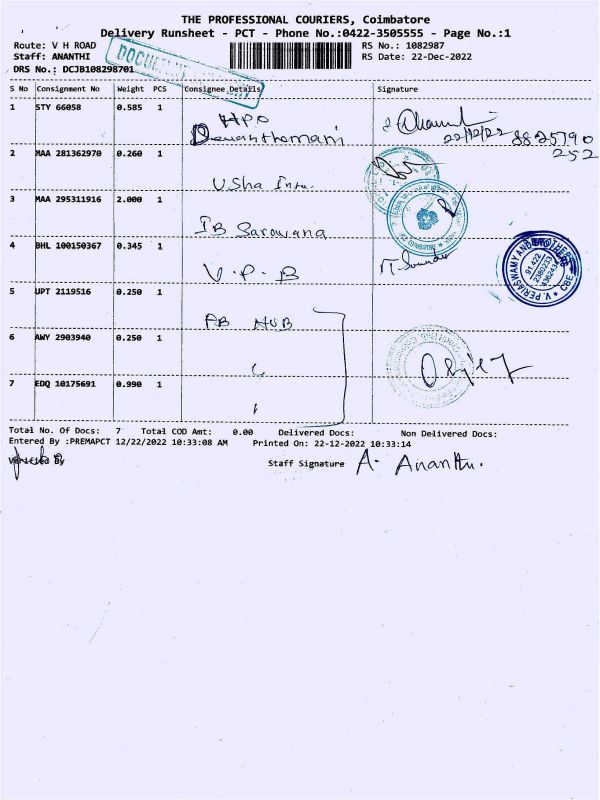 THE PROFESSIONAL COURIERS, Coimbatore
Delivery Runsheet - PCT - Phone No.:0422-3505555 - Page No.:1
Route: V H ROAD RS No.: 1082987
Staff: ANANTHI RS Date: 22-Dec-2022
DRS No.: DCJB108298701
S No Consignment No Weight PCS Consignee Details Signature
1 STY 66058 0.585 1
HPO
22/12/22 8825790
252
2 MAA 281362970 0.260 1
Usha
3 MAA 295311916 2.000 1
IB Saravana
4 BHL 100150367 0.345 1
V.P.B
V.PERIASWAMY AND BROTHERS
CBE
5 UPT 2119516 0.250 1
PB HUB
6 AWY 2903940 0.250 1
7 EDQ 10175691 0.990 1
Total No. Of Docs: 7 Total COD Amt: 0.00 Delivered Docs: Non Delivered Docs:
Entered By :PREMAPCT 12/22/2022 10:33:08 AM Printed On: 22-12-2022 10:33:14
Verified By Staff Signature A. Ananthi.